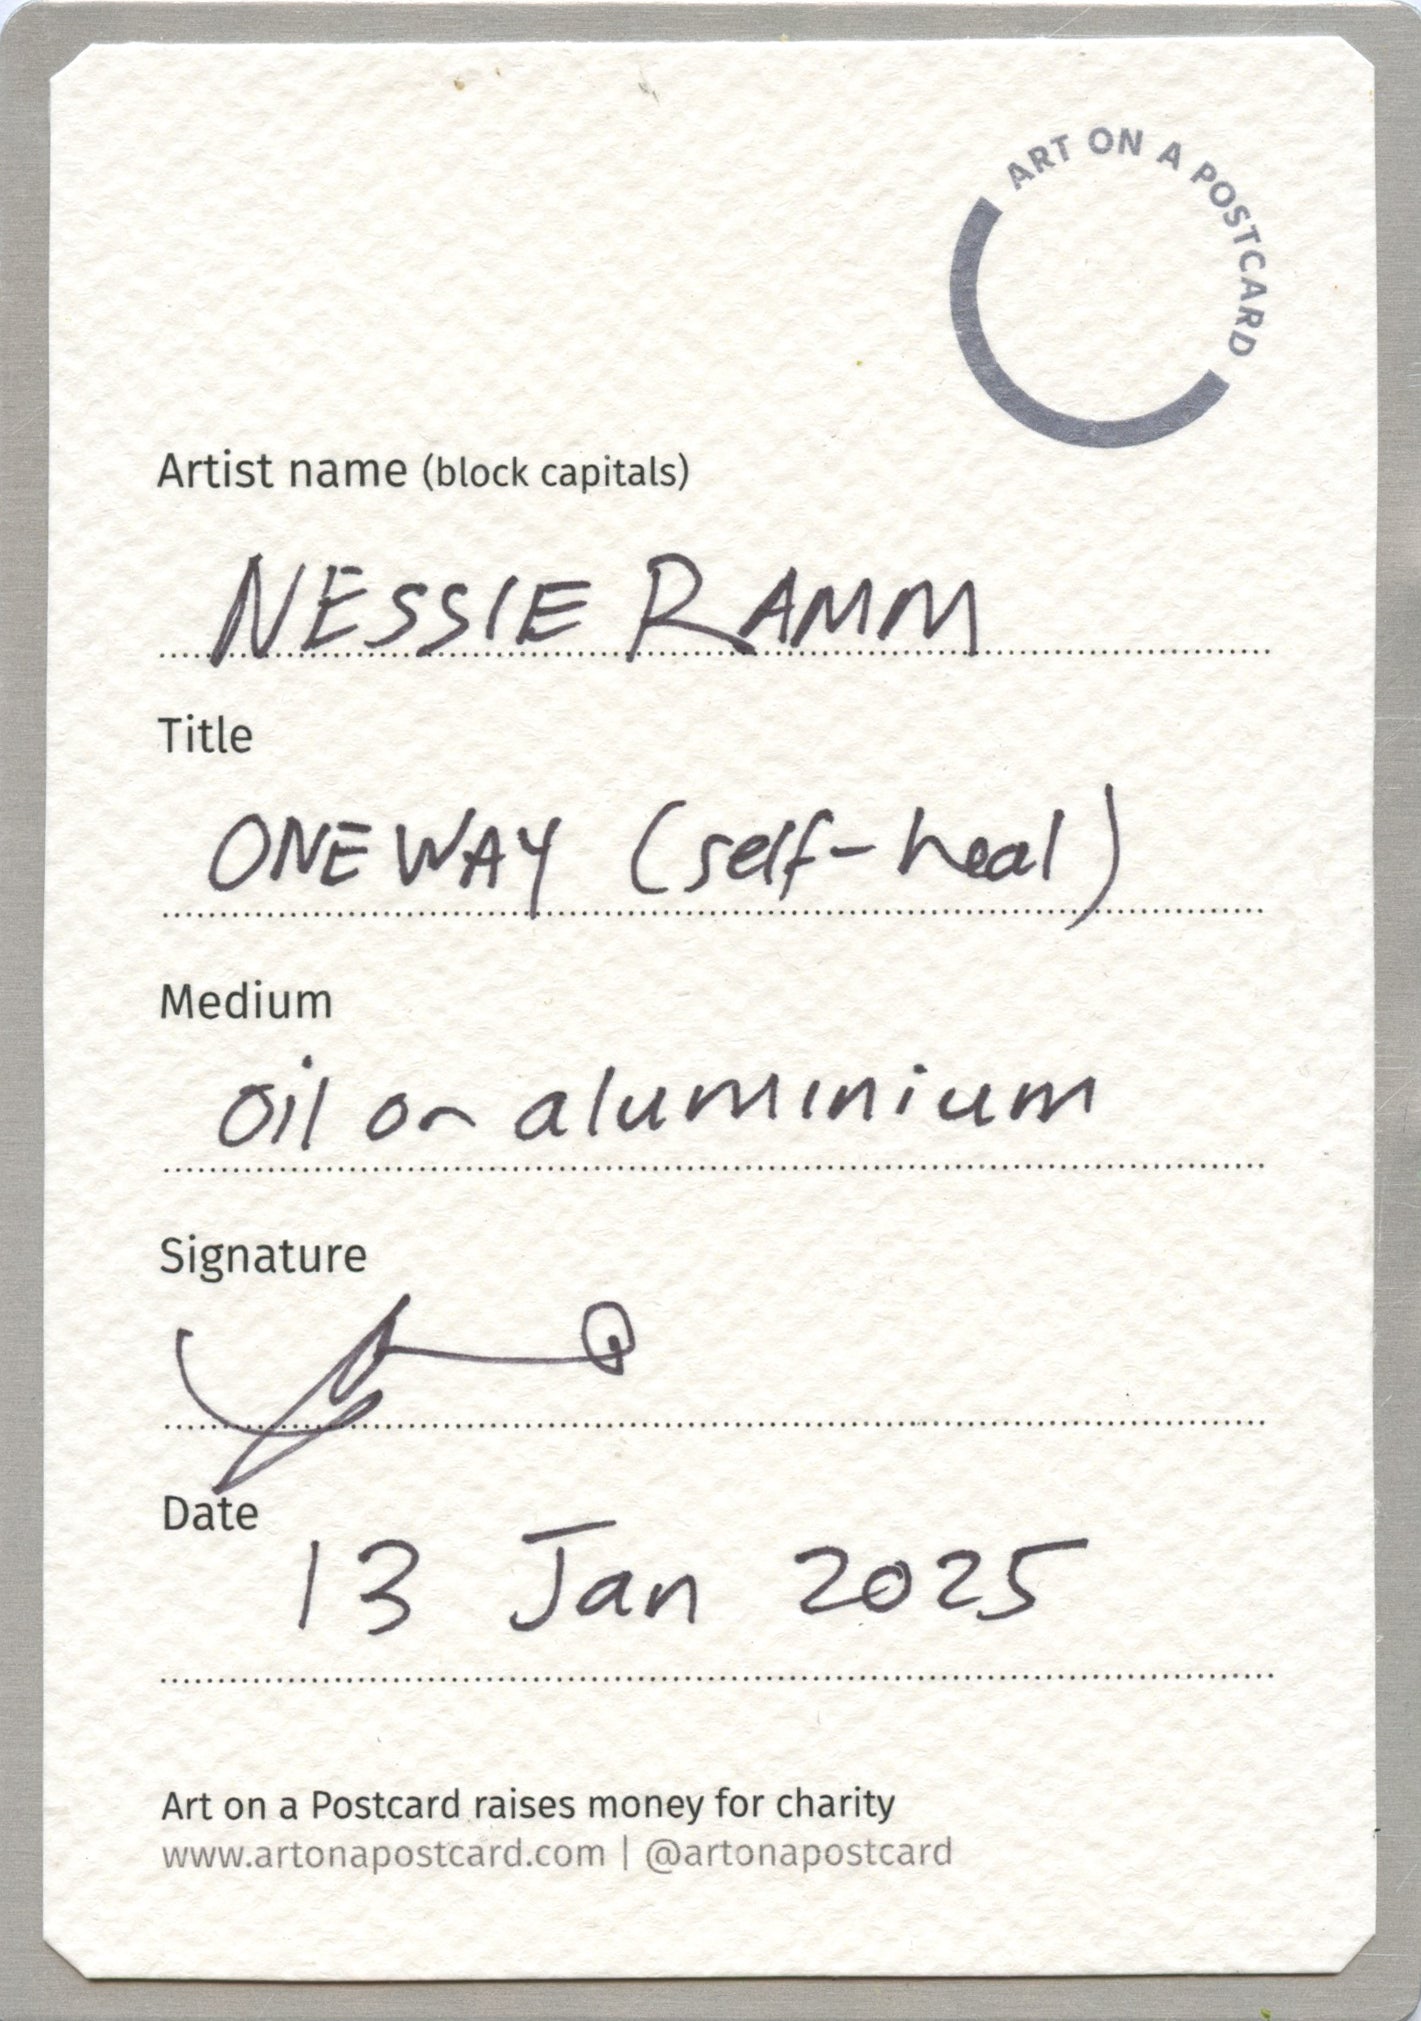 ART ON A POSTCARD
Artist name (block capitals)
NESSIE RAMM
Title
ONE WAY (self-heal)
Medium
Oil on aluminium
Signature
Date
13 Jan 2025
Art on a Postcard raises money for charity
www.artonapostcard.com | @artonapostcard